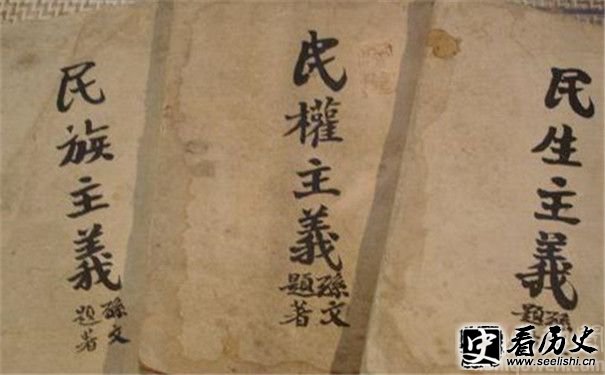 民族主義
孫文
題著
民權主義
孫文
題著
民生主義
孫
題
史 看历史
www.seelishi.cn